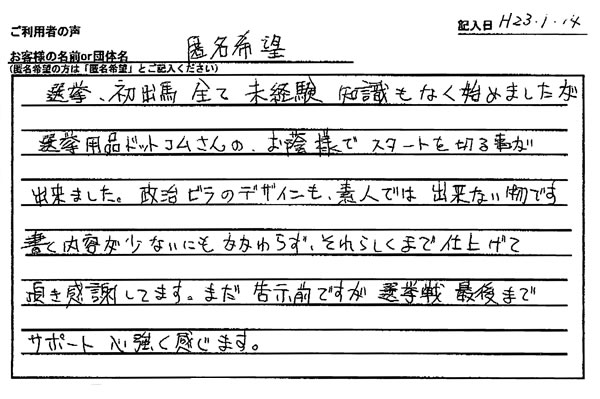 ご利用者の声
記入日 H23.1.14
お客様の名前or団体名 匿名希望
(匿名希望の方は「匿名希望」とご記入ください)
選挙、初出馬 全て 未経験 知識もなく始めましたが
選挙用品ドットコムさんの、お蔭様で スタートを切る事が
出来ました。政治ビラのデザインも、素人では 出来ない物です
書く内容が少ないにもかかわらず、それらしくまで仕上げて
頂き感謝してます。まだ 告示前ですが 選挙戦 最後まで
サポート 心強く感じます。